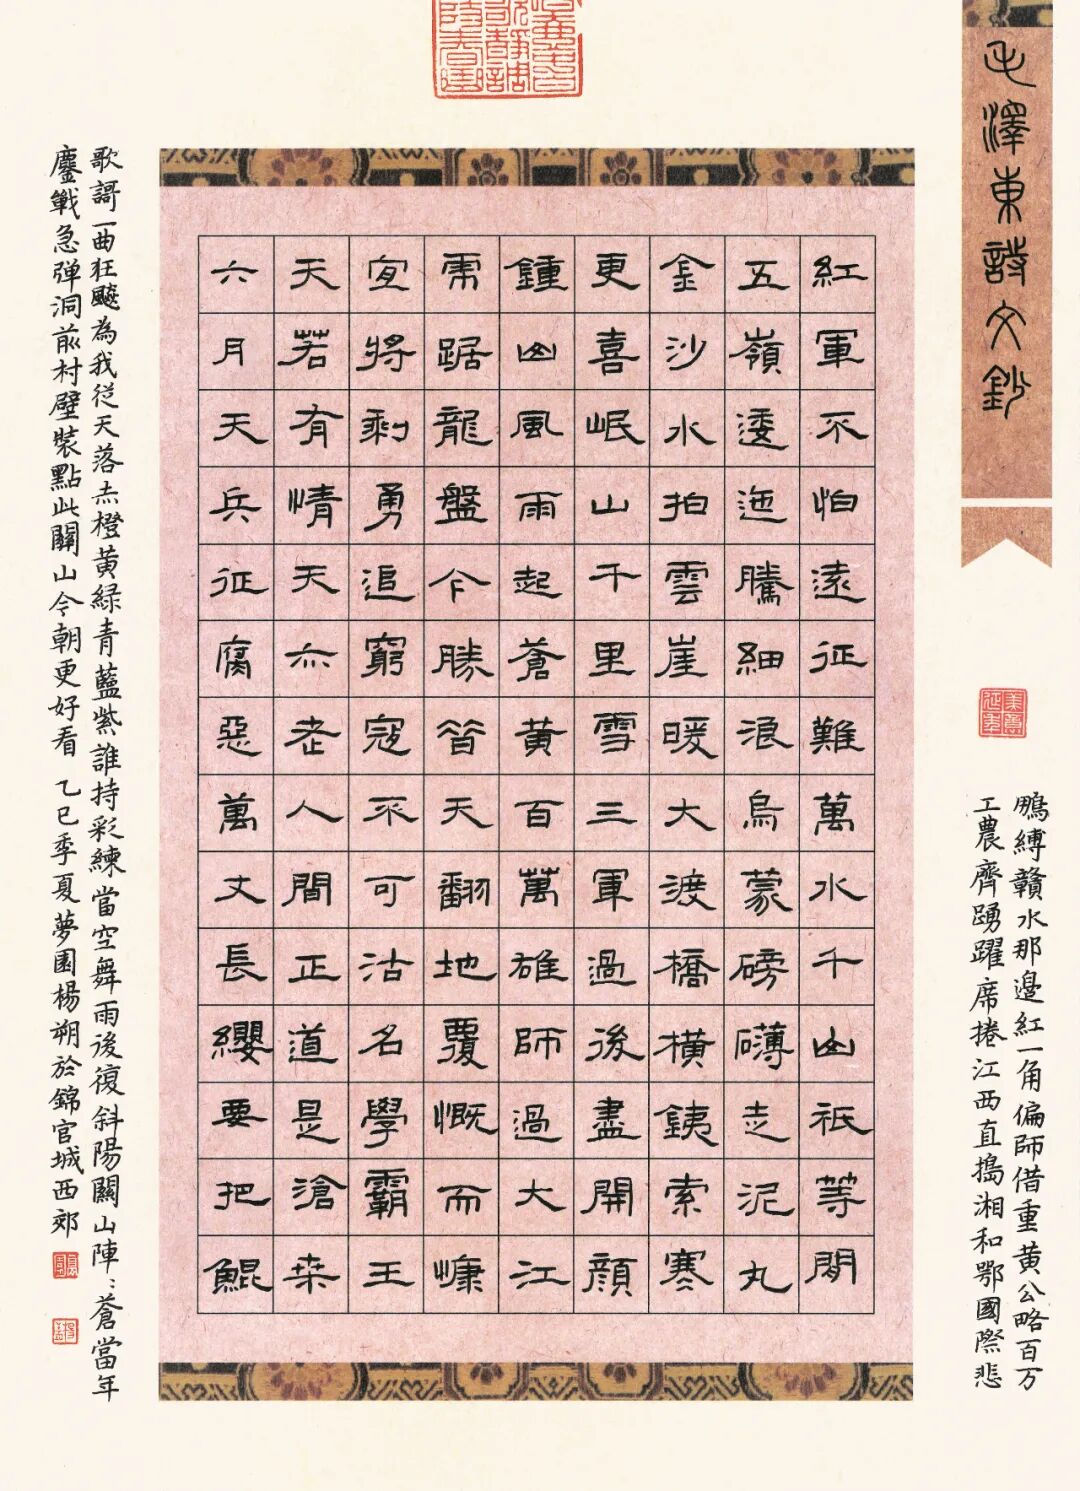 毛澤東詩文鈔
紅軍不怕遠征難萬水千山祇等閒
五嶺逶迤騰細浪烏蒙磅礴走泥丸
金沙水拍雲崖暖大渡橋橫鐵索寒
更喜岷山千里雪三軍過後盡開顏
鍾山風雨起蒼黃百萬雄師過大江
虎踞龍盤今勝昔天翻地覆慨而慷
宜將剩勇追窮寇不可沽名學霸王
天若有情天亦老人間正道是滄桑
六月天兵征腐惡萬丈長纓要把鯤
鵬縛贛水那邊紅一角偏師借重黃公略百万
工農齊踴躍席捲江西直搗湘和鄂國際悲
歌謌一曲狂飈為我從天落赤橙黃緑青藍紫誰持彩練當空舞雨後復斜陽關山陣〻蒼當年
鏖戰急弹洞前村壁裝點此關山今朝更好看 乙巳季夏夢園楊朔於錦官城西郊
美意延年